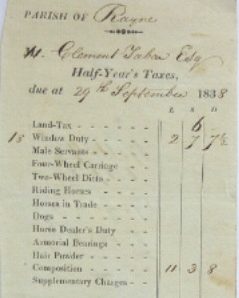 PARISH OF Rayne
M. Clement Taber Esq
Half-Year's Taxes,
due at 29th September 1838
£ S D
Land-Tax - - - - 6
13 Window Duty - - - - 2 7 7½
Male Servants - - - -
Four-Wheel Carriage - - - -
Two-Wheel Ditto - - - -
Riding Horses - - - -
Horses in Trade - - - -
Dogs - - - -
Horse Dealer's Duty - - - -
Armorial Bearings - - - -
Hair Powder - - - -
Composition - - - - 11 3 8
Supplementary Charges - -